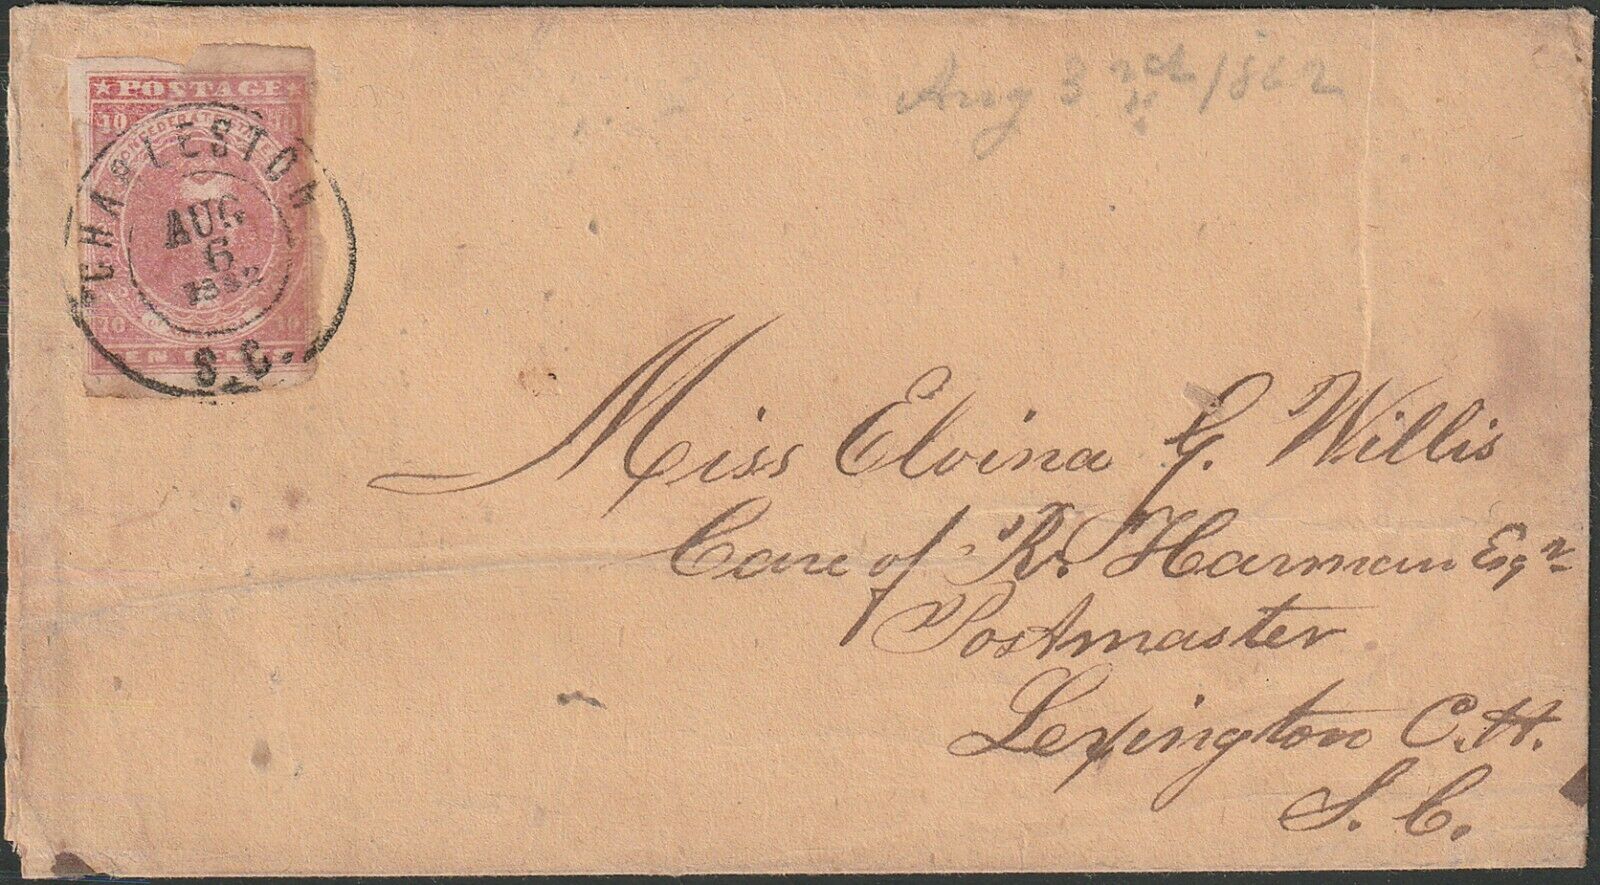 Aug 3rd /1862
POSTAGE
10 10
CONFEDERATE STATES
CHARLESTON
AUG
6
1862
S.C.
10 10
TEN CENTS
Miss Elvina G. Willis
Care of R. Harman Esqr
Postmaster
Lexington C.H.
S.C.